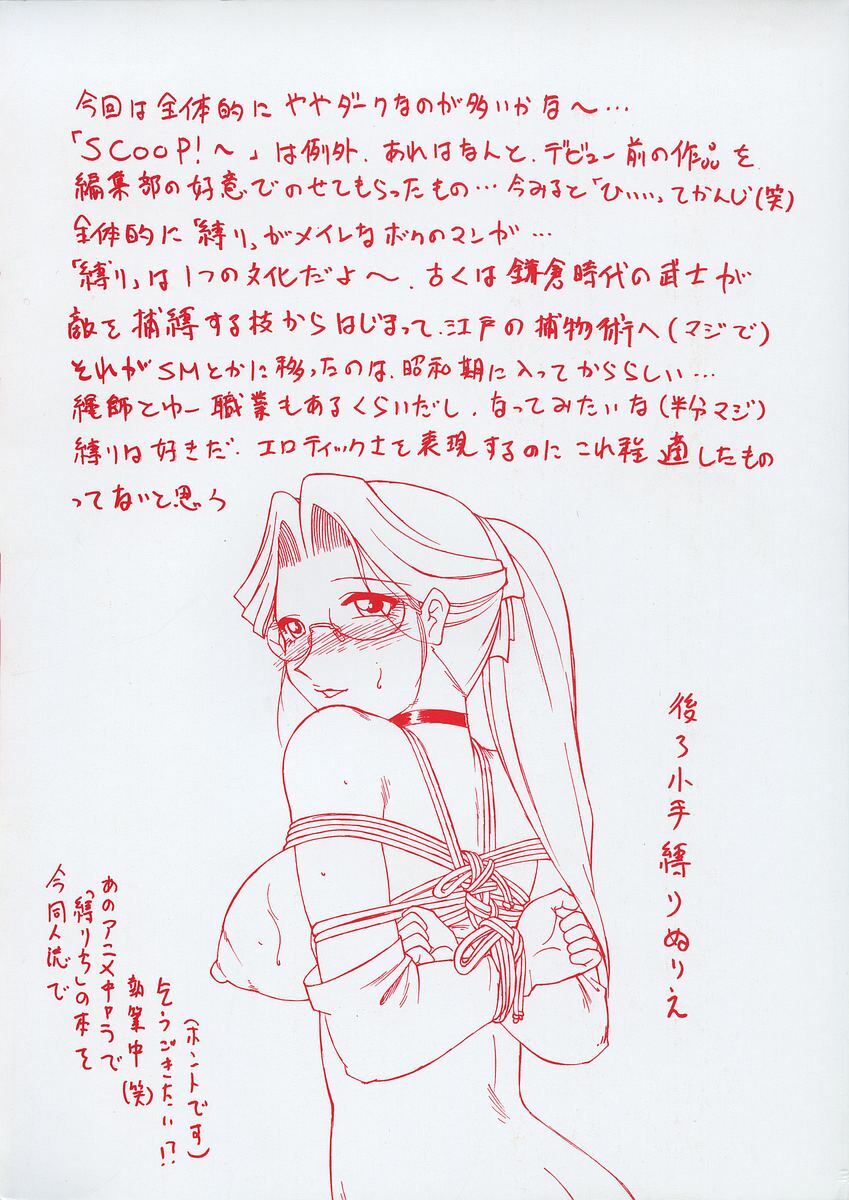 今回は全体的に ややダークなのが多いかな〜…
「SCOOP!〜」は例外、あれはなんと、デビュー前の作品を
編集部の好意でのせてもらったもの…今みると「ひぃぃぃ」てかんじ(笑)
全体的に「縛り」がメイレなボクのマンガ…
「縛り」は1つの文化だよ〜、古くは鎌倉時代の武士が
敵を捕縛する技からはじまって、江戸の捕物術へ(マジで)
それがSMとかに移ったのは、昭和期に入ってかららしい…
縄師とゆー職業もあるくらいだし、なってみたいな(半分マジ)
縛りは好きだ、エロティック士を表現するのにこれ程適したもの
ってないと思う
後ろ小手縛りぬりえ
今同人流で
「縛りもしの本を
あのアニメキャラで
執筆中(笑)
乞うごきたい!?
(ホントです)